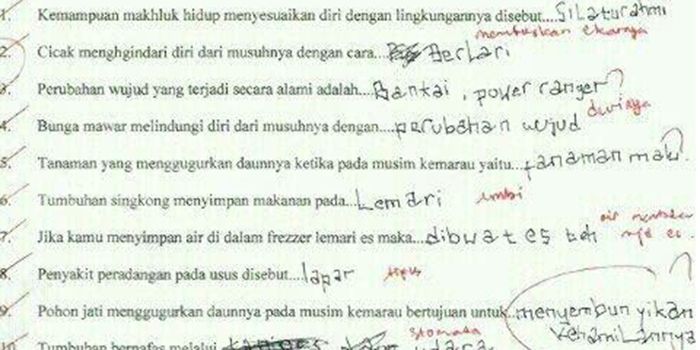 1. Kemampuan makhluk hidup menyesuaikan diri dengan lingkungannya disebut....Silaturahmi
2. Cicak menghgindari diri dari musuhnya dengan cara... Berlari
3. Perubahan wujud yang terjadi secara alami adalah....Bantai, power ranger ?
durinya
4. Bunga mawar melindungi diri dari musuhnya dengan....perubahan wujud
5. Tanaman yang menggugurkan daunnya ketika pada musim kemarau yaitu...tanaman
6. Tumbuhan singkong menyimpan makanan pada...Lemari umbi
7. Jika kamu menyimpan air di dalam frezzer lemari es maka...dibuat es teh
8. Penyakit peradangan pada usus disebut....lapar tipus
9. Pohon jati menggugurkan daunnya pada musim kemarau bertujuan untuk..menyembunyikan
kehamilannya
stomata
10. Tumbuhan bernafas melalui udara